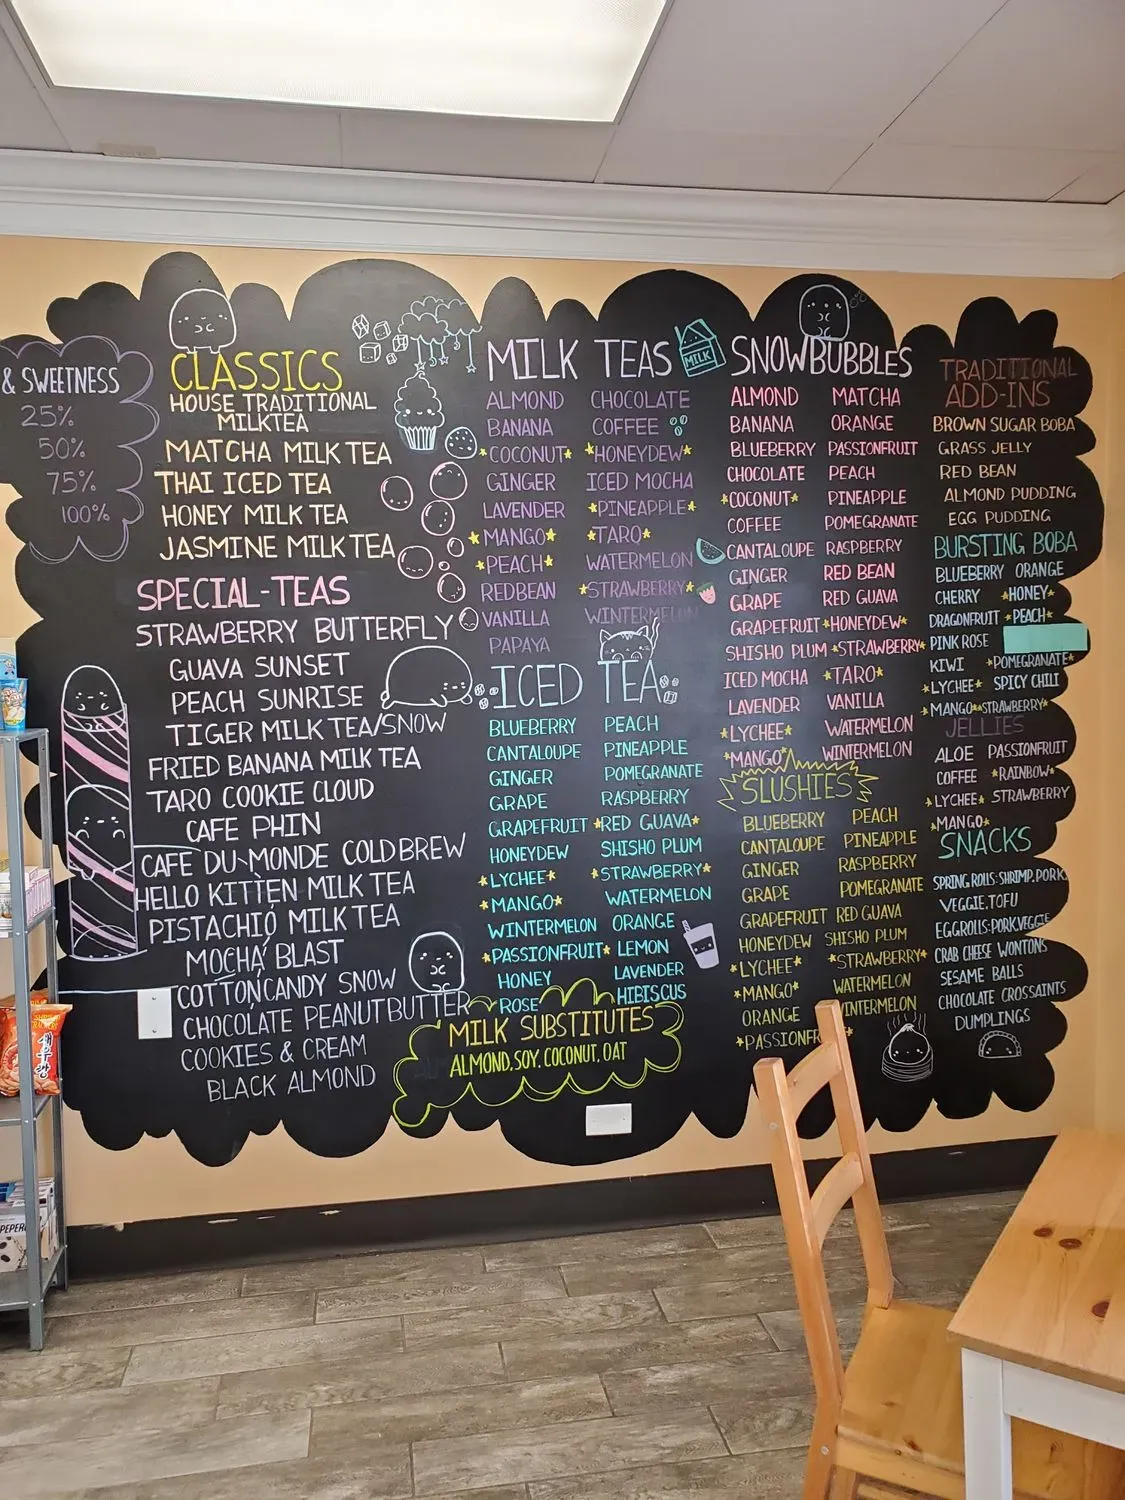 & SWEETNESS
25%
50%
75%
100%
CLASSICS
HOUSE TRADITIONAL
MILKTEA
MATCHA MILK TEA
THAI ICED TEA
HONEY MILK TEA
JASMINE MILK TEA
SPECIAL-TEAS
STRAWBERRY BUTTERFLY
GUAVA SUNSET
PEACH SUNRISE
TIGER MILK TEA/SNOW
FRIED BANANA MILK TEA
TARO COOKIE CLOUD
CAFE PHIN
CAFE DU-MONDE COLD BREW
HELLO KITTEN MILK TEA
PISTACHIO MILK TEA
MOCHA BLAST
COTTONCANDY SNOW
CHOCOLATE PEANUTBUTTER
COOKIES & CREAM
BLACK ALMOND
MILK TEAS
MILK
ALMOND CHOCOLATE
BANANA COFFEE
*COCONUT* *HONEYDEW*
GINGER ICED MOCHA
LAVENDER *PINEAPPLE*
*MANGO* *TARO*
*PEACH* WATERMELON
REDBEAN *STRAWBERRY*
VANILLA WINTERMELON
PAPAYA
ICED TEA
BLUEBERRY PEACH
CANTALOUPE PINEAPPLE
GINGER POMEGRANATE
GRAPE RASPBERRY
GRAPEFRUIT *RED GUAVA*
HONEYDEW SHISHO PLUM
*LYCHEE* *STRAWBERRY*
*MANGO* WATERMELON
WINTERMELON ORANGE
*PASSIONFRUIT* LEMON
HONEY LAVENDER
ROSE HIBISCUS
MILK SUBSTITUTES
ALMOND, SOY, COCONUT, OAT
SNOWBUBBLES
ALMOND MATCHA
BANANA ORANGE
BLUEBERRY PASSIONFRUIT
CHOCOLATE PEACH
*COCONUT* PINEAPPLE
COFFEE POMEGRANATE
CANTALOUPE RASPBERRY
GINGER RED BEAN
GRAPE RED GUAVA
GRAPEFRUIT *HONEYDEW*
SHISHO PLUM *STRAWBERRY*
ICED MOCHA *TARO*
LAVENDER VANILLA
*LYCHEE* WATERMELON
*MANGO* WINTERMELON
SLUSHIES
BLUEBERRY PEACH
CANTALOUPE PINEAPPLE
GINGER RASPBERRY
GRAPE POMEGRANATE
GRAPEFRUIT RED GUAVA
HONEYDEW SHISHO PLUM
*LYCHEE* *STRAWBERRY*
*MANGO* WATERMELON
ORANGE WINTERMELON
*PASSIONFR
TRADITIONAL
ADD-INS
BROWN SUGAR BOBA
GRASS JELLY
RED BEAN
ALMOND PUDDING
EGG PUDDING
BURSTING BOBA
BLUEBERRY ORANGE
CHERRY *HONEY*
DRAGONFRUIT *PEACH*
PINK ROSE
KIWI *POMEGRANATE*
*LYCHEE* SPICY CHILI
*MANGO* *STRAWBERRY*
JELLIES
ALOE PASSIONFRUIT
COFFEE *RAINBOW*
*LYCHEE* STRAWBERRY
*MANGO*
SNACKS
SPRING ROLLS: SHRIMP, PORK,
VEGGIE, TOFU
EGGROLLS: PORK, VEGGIE
CRAB CHEESE WONTONS
SESAME BALLS
CHOCOLATE CROSSAINTS
DUMPLINGS